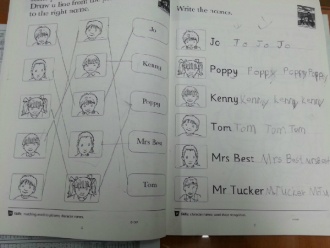 Draw a line from the
to the right name.
Jo
Kenny
Poppy
Mrs Best
Tom
Write the names.
Jo Jo Jo Jo
Poppy Poppy Poppy Poppy
Kenny Kenny Kenny Kenny
Tom Tom Tom Tom
Mrs Best Mrs Best
Mr Tucker Mr Tucker